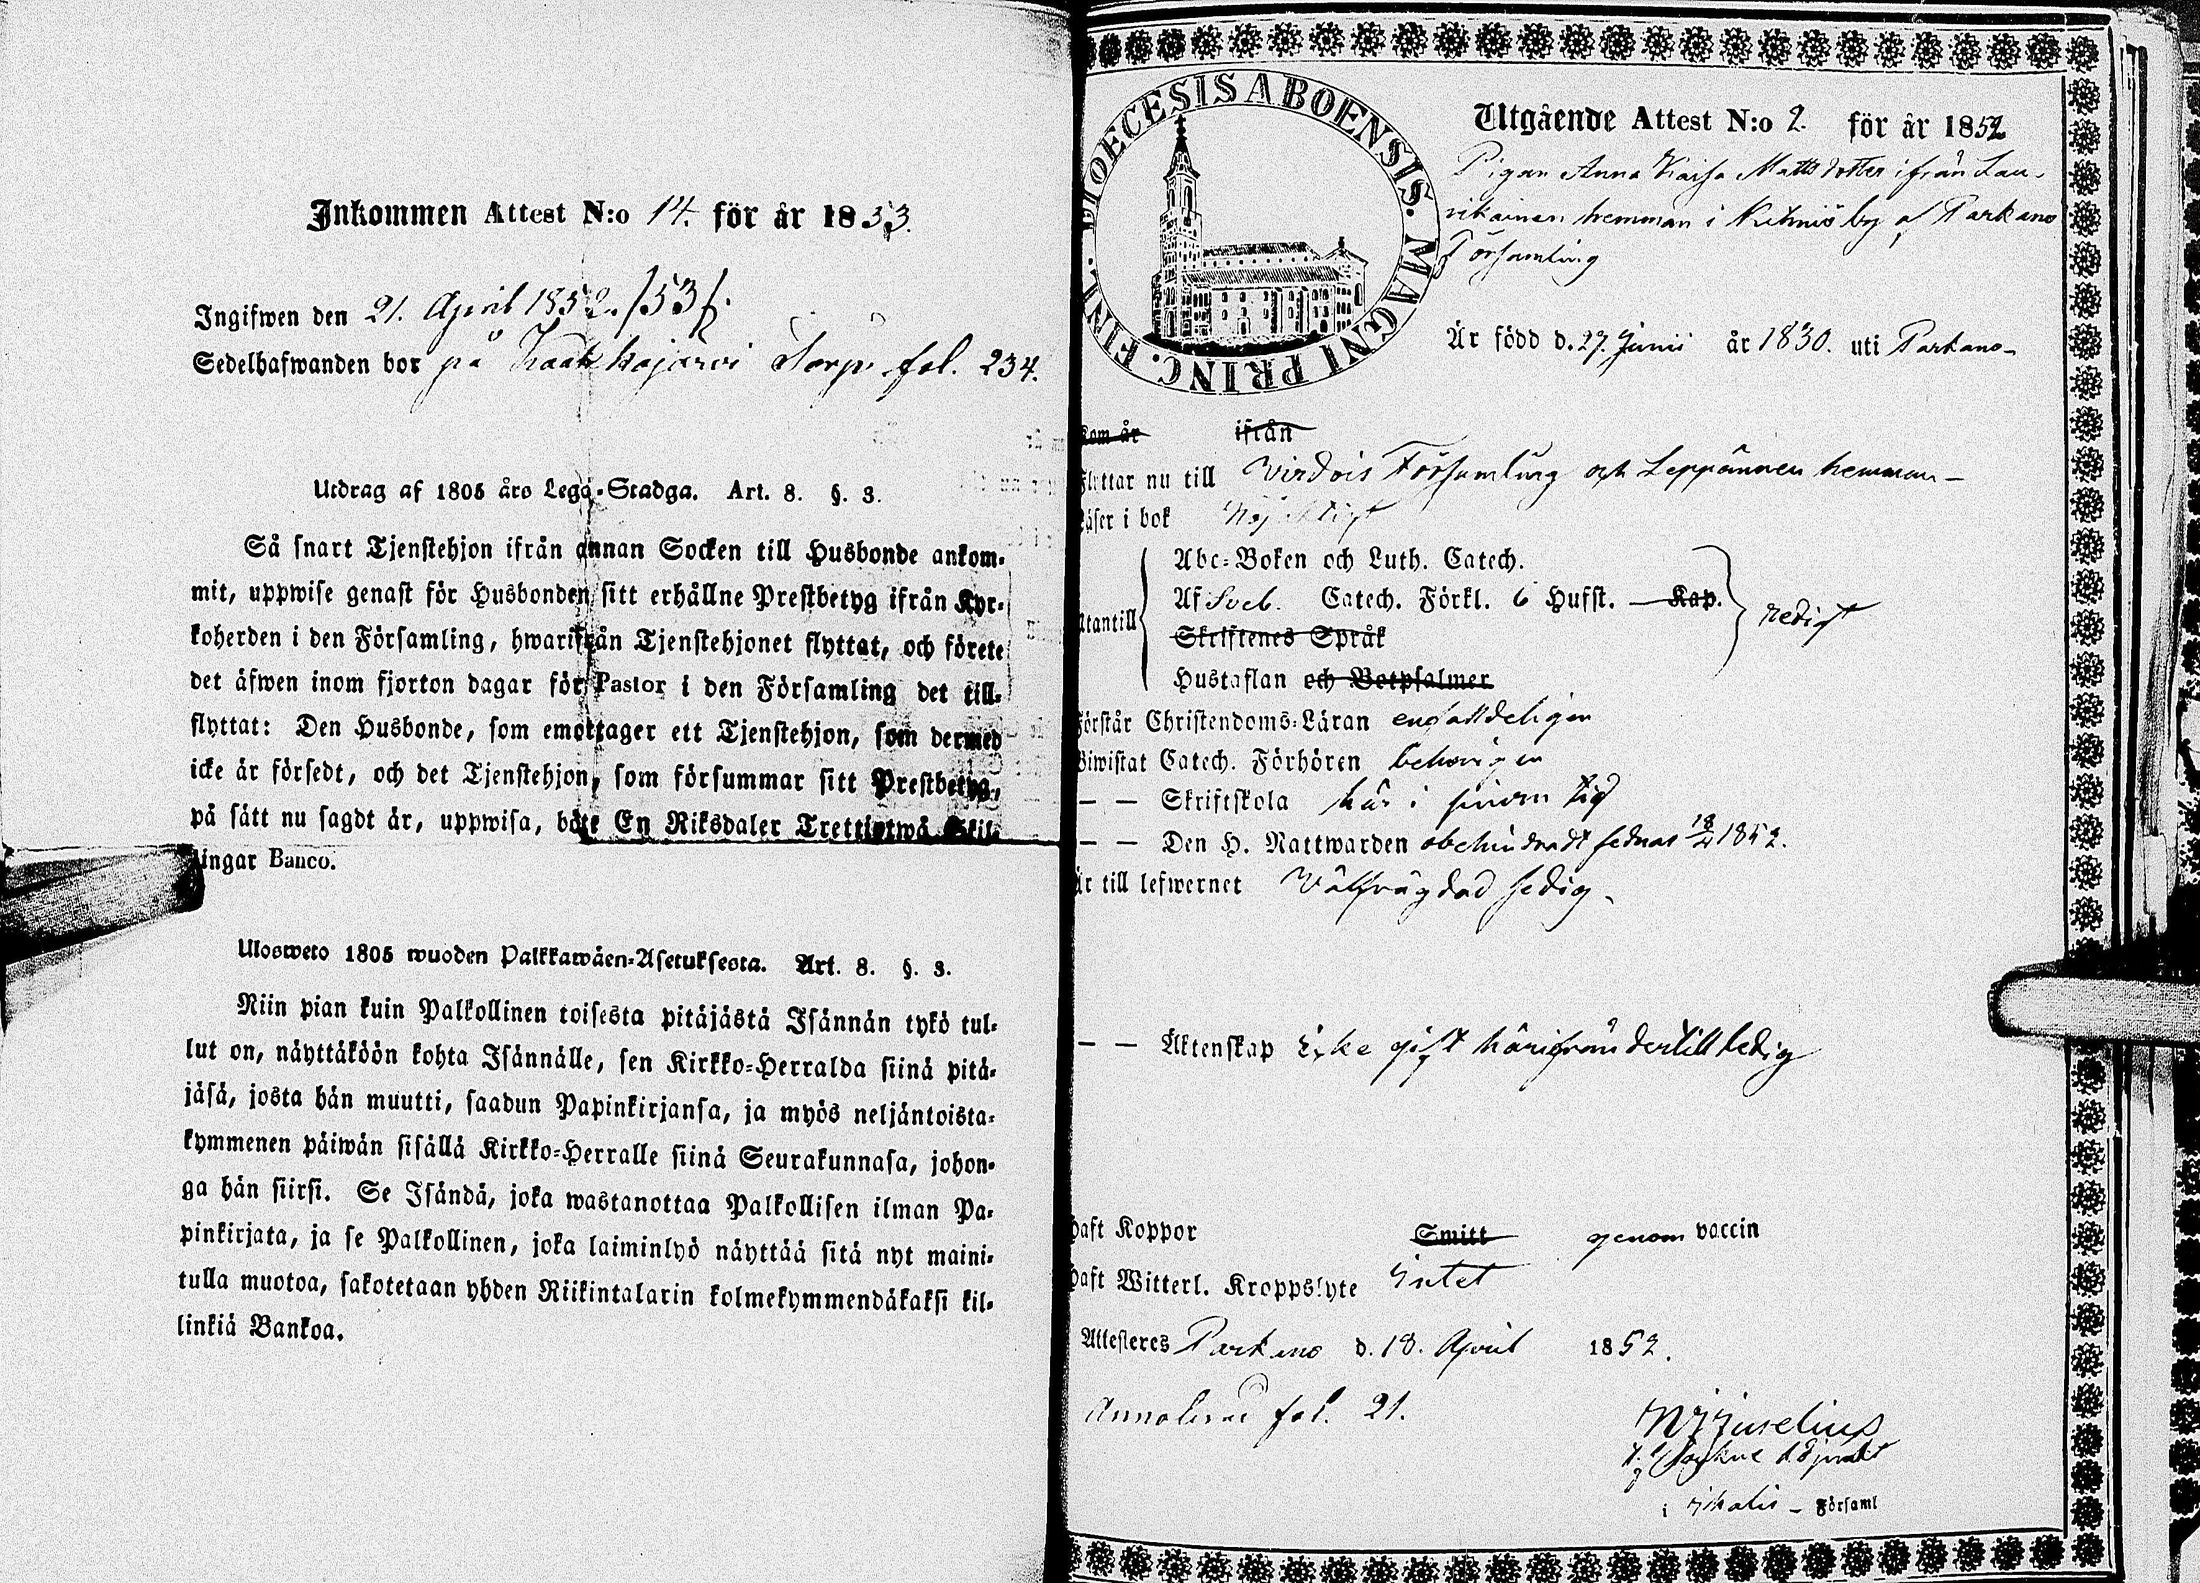 Inkommen Attest N:o 14. för år 1853.
Ingifwen den 21. April 1852. /53/.
Sedelhafwanden bor på Kaakkojärvi Torp. fol. 234.
Utdrag af 1805 års Lego-Stadga. Art. 8. §. 3.
Så snart Tjenstehjon ifrån annan Socken till Husbonde ankom-
mit, uppwise genast för Husbonden sitt erhållne Prestbetyg ifrån Kyr-
koherden i den Församling, hwarifrån Tjenstehjonet flyttat, och förete
det äfwen inom fjorton dagar för Pastor i den Församling det till-
flyttat: Den Husbonde, som emottager ett Tjenstehjon, som dermed
icke är försedt, och det Tjenstehjon, som försummar sitt Prestbetyg,
på sätt nu sagdt är, uppwisa, böte En Riksdaler Trettiotwå Skil-
lingar Banco.
Ulosweto 1805 wuoden Palkkawäen-Asetuksesta. Art. 8. §. 3.
Niin pian kuin Palkollinen toisesta pitäjästä Isännän tykö tul-
lut on, näyttäköön kohta Isännälle, sen Kirkko-Herralda siinä pitä-
jäsä, josta hän muutti, saadun Papinkirjansa, ja myös neljäntoista-
kymmenen päiwän sisällä Kirkko-Herralle siinä Seurakunnasa, johon-
ga hän siirsi. Se Isändä, joka wastanottaa Palkollisen ilman Pa-
pinkirjata, ja se Palkollinen, joka laiminlyö näyttää sitä nyt maini-
tulla muotoa, sakotetaan yhden Riikintalarin kolmekymmendäkaksi kil-
linkiä Bankoa.
DIOECESIS ABOENSIS. MAGNI PRINC. FINL.
Utgående Attest N:o 2. för år 1852
Pigan Anna Kaisa Mattsdotter ifrån Lau-
rikainen hemman i Kihniö by af Parkano
Församling
Är född d. 27. Junii år 1830. uti Parkano
Kom år ifrån
Flyttar nu till Virdois Församling och Leppännen hemman
Läser i bok
Utantill
Abc-Boken och Luth. Catech.
Af Sveb. Catech. Förkl. 6 Hufst. Kap.
Skriftenes Språk
Hustaflan och Botpsalmer
redigt
Förstår Christendoms-Läran
Biwistat Catech. Förhören behörigen
— — Skriftskola här i sinom tid
— — Den H. Nattwarden obehindradt sednast 18/4 1852.
Är till lefwernet Välfrägdad ledig
— — Äktenskap icke gift härifrån dertill ledig
Haft Koppor Smitt genom vaccin
Haft Witterl. Kroppslyte Intet
Attesteres Parkano d. 18. April 1852.
Annoterad fol. 21.
i Församl